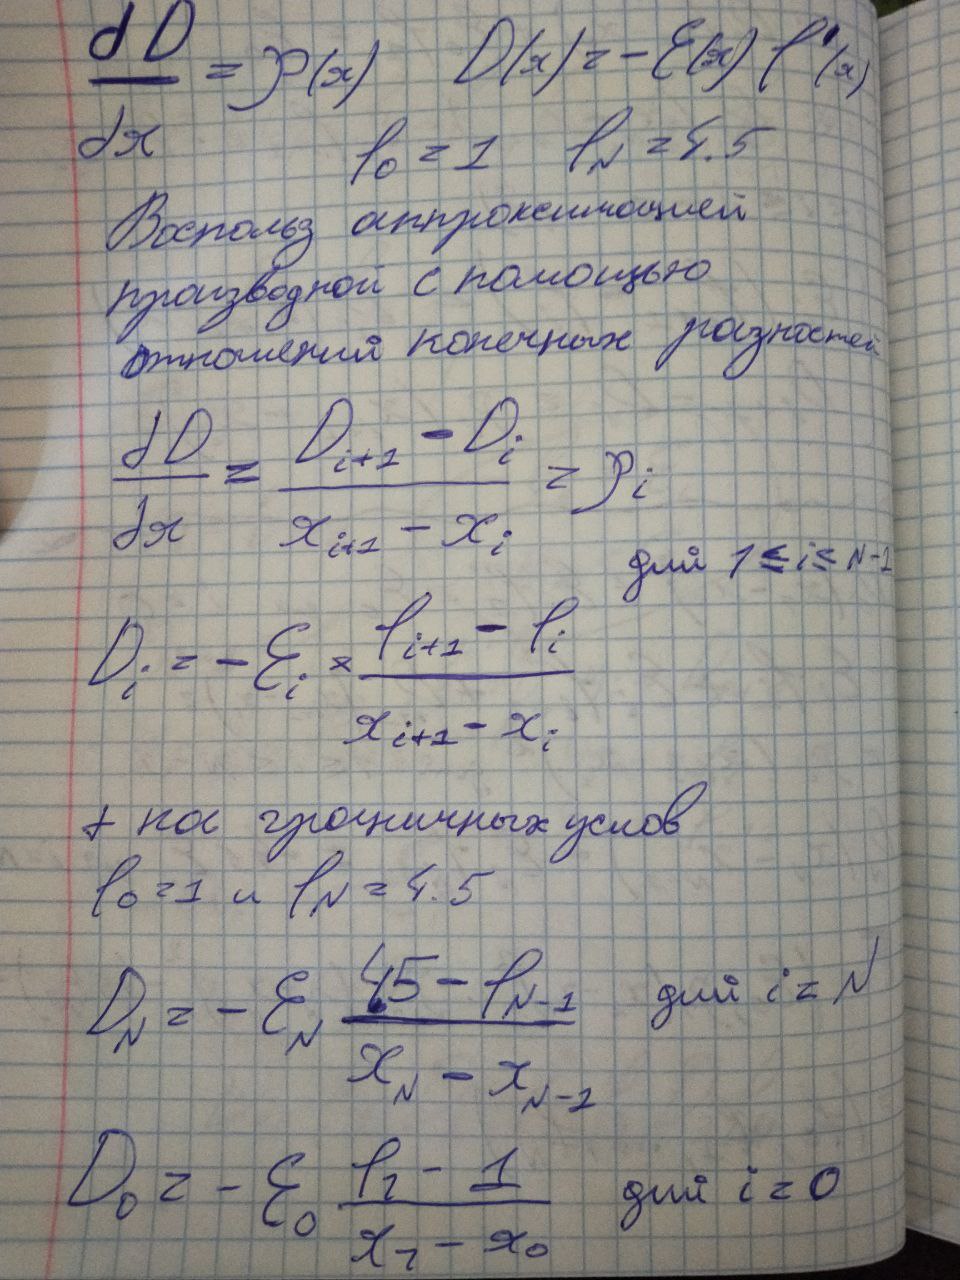 dD/dx = ρ(x) D(x) = - ε(x) φ'(x)
φ₀ = 1 φ_N = 4.5
Воспольз аппроксимацией
производной с помощью
отношений конечных разностей
dD/dx = (D_{i+1} - D_i)/(x_{i+1} - x_i) = ρ_i
для 1 ≤ i ≤ N-1
D_i = - ε_i × (φ_{i+1} - φ_i)/(x_{i+1} - x_i)
граничных услов
φ₀ = 1 и φ_N = 4.5
D_N = - ε_N (4.5 - φ_{N-1})/(x_N - x_{N-1}) для i = N
D₀ = - ε₀ (φ₁ - 1)/(x₁ - x₀) для i = 0